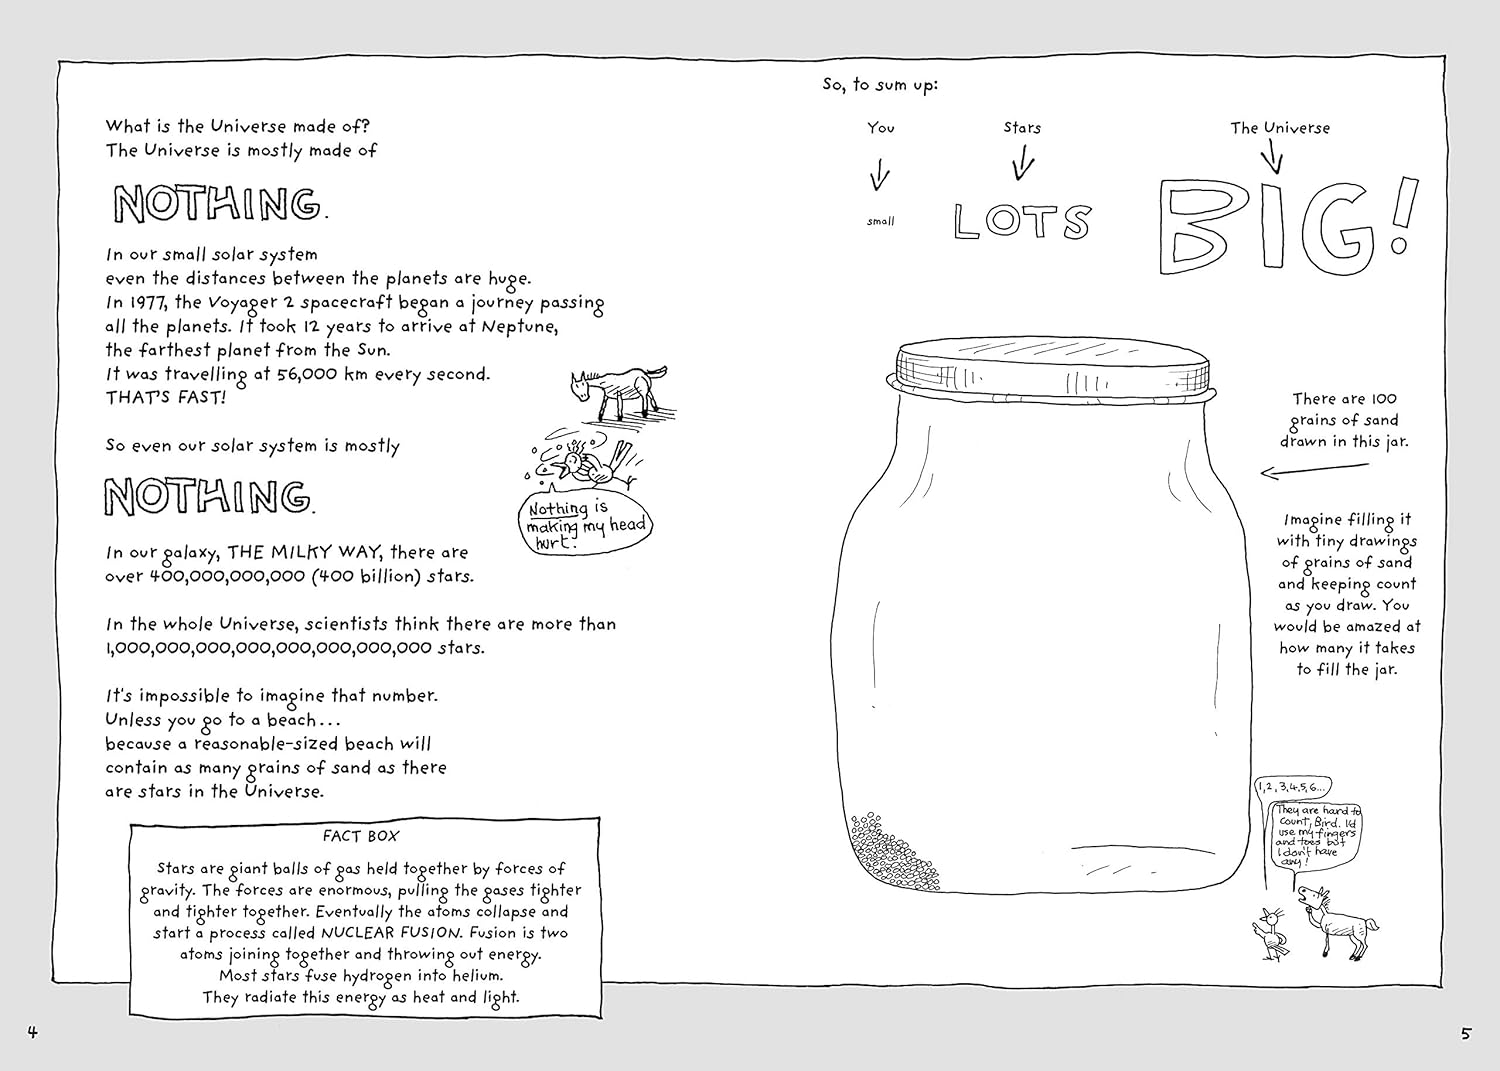 What is the Universe made of?
The Universe is mostly made of
NOTHING.
In our small solar system
even the distances between the planets are huge.
In 1977, the Voyager 2 spacecraft began a journey passing
all the planets. It took 12 years to arrive at Neptune,
the farthest planet from the Sun.
It was travelling at 56,000 km every second.
THAT'S FAST!
So even our solar system is mostly
NOTHING.
Nothing is
making my head
hurt!
In our galaxy, THE MILKY WAY, there are
over 400,000,000,000 (400 billion) stars.
In the whole Universe, scientists think there are more than
1,000,000,000,000,000,000,000,000 stars.
It's impossible to imagine that number.
Unless you go to a beach...
because a reasonable-sized beach will
contain as many grains of sand as there
are stars in the Universe.
FACT BOX
Stars are giant balls of gas held together by forces of
gravity. The forces are enormous, pulling the gases tighter
and tighter together. Eventually the atoms collapse and
start a process called NUCLEAR FUSION. Fusion is two
atoms joining together and throwing out energy.
Most stars fuse hydrogen into helium.
They radiate this energy as heat and light.
4
So, to sum up:
You
small
Stars
LOTS
The Universe
BIG!
There are 100
grains of sand
drawn in this jar.
Imagine filling it
with tiny drawings
of grains of sand
and keeping count
as you draw. You
would be amazed at
how many it takes
to fill the jar.
1,2,3,4,5,6...
They are hard to
count, Bird. I'd
use my fingers
and toes but
I don't have
any!
5